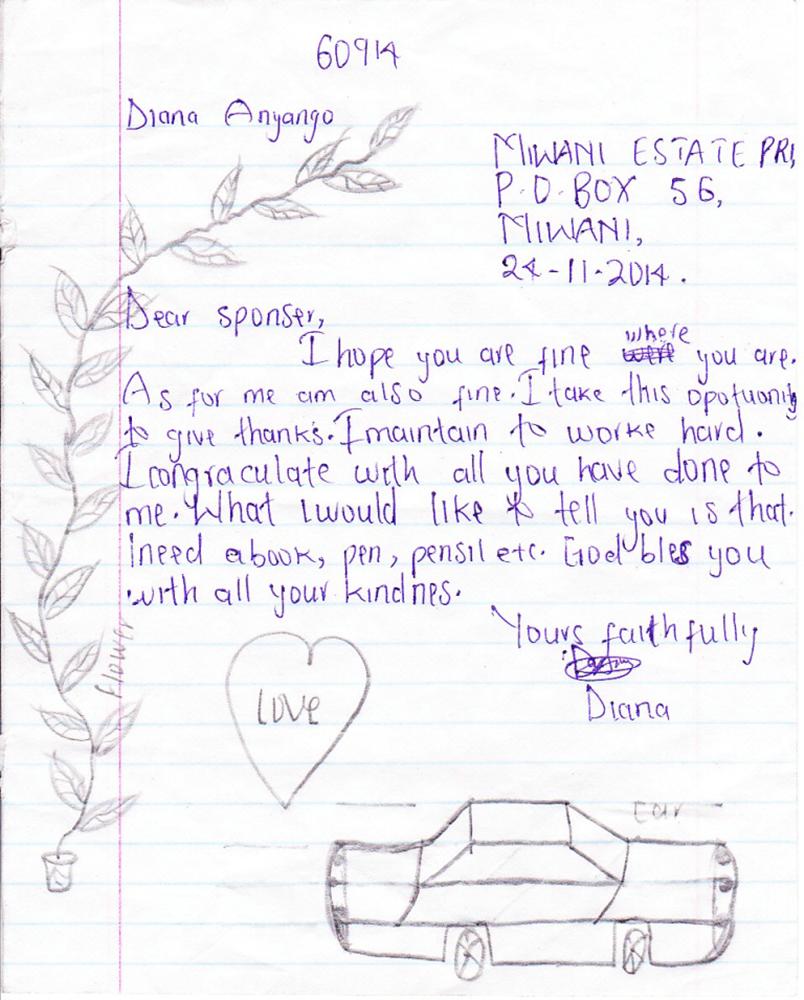 60914
Diana Anyango
MIWANI ESTATE PRI,
P.O.BOX 56,
MIWANI,
24-11-2014.
Dear sponser,
I hope you are fine where you are.
As for me am also fine. I take this opotuonity
to give thanks. I maintain to worke hard.
I congraculate with all you have done to
me. What I would like to tell you is that.
ineed abook, pen, pensil etc. God bles you
with all your kindnes.
Yours faithfully
Diana
flower
love
car